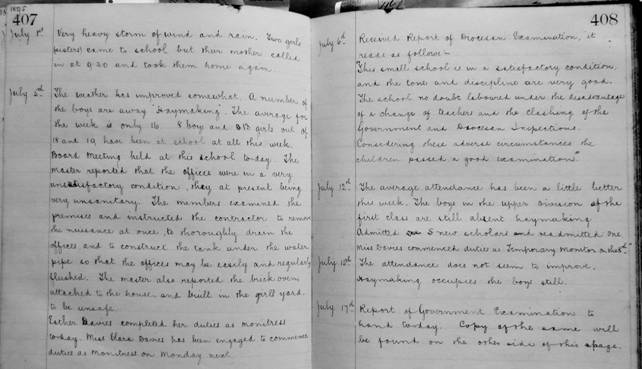 1895
407
July 1st Very heavy storm of wind and rain. Two girls
(sisters) came to school but their mother called
in at 9.20 and took them home again.
July 2nd The weather has improved somewhat. A number of
the boys are away "Haymaking". The average for
the week is only 16. 8 boys and 8 girls out of
18 and 19 have been at school at all this week.
Board Meeting held at this school today. The
master reported that the offices were in a very
unsatisfactory condition, they at present being
very unsanitary. The members examined the
premises and instructed the contractor to remove
the nuisance at once, to thoroughly drain the
offices and to construct the tank under the water
pipe so that the offices may be easily and regularly
flushed. The master also reported the brick oven
attached to the house and built in the girls' yard
to be unsafe.
Esther Davies completed her duties as monitress
today. Miss Clara Davies has been engaged to commence
duties as Monitress on Monday next.
408
July 6th Received Report of Diocesan Examination, it
reads as follows:-
"This small school is in a satisfactory condition,
and the tone and discipline are very good.
The school no doubt laboured under the disadvantage
of a change of teachers and the clashing of the
Government and Diocesan Inspections.
Considering these adverse circumstances the
children passed a good examination."
July 12th The average attendance has been a little better
this week. The boys in the upper division of the
first class are still absent haymaking.
Admitted 5 new scholars and readmitted one.
Miss Davies commenced duties as Temporary Monitor on the 8th
The attendance does not seem to improve.
Haymaking occupies the boys still.
July 17th Report of Government Examination to
hand today. Copy of the same will
be found on the other side of this page.